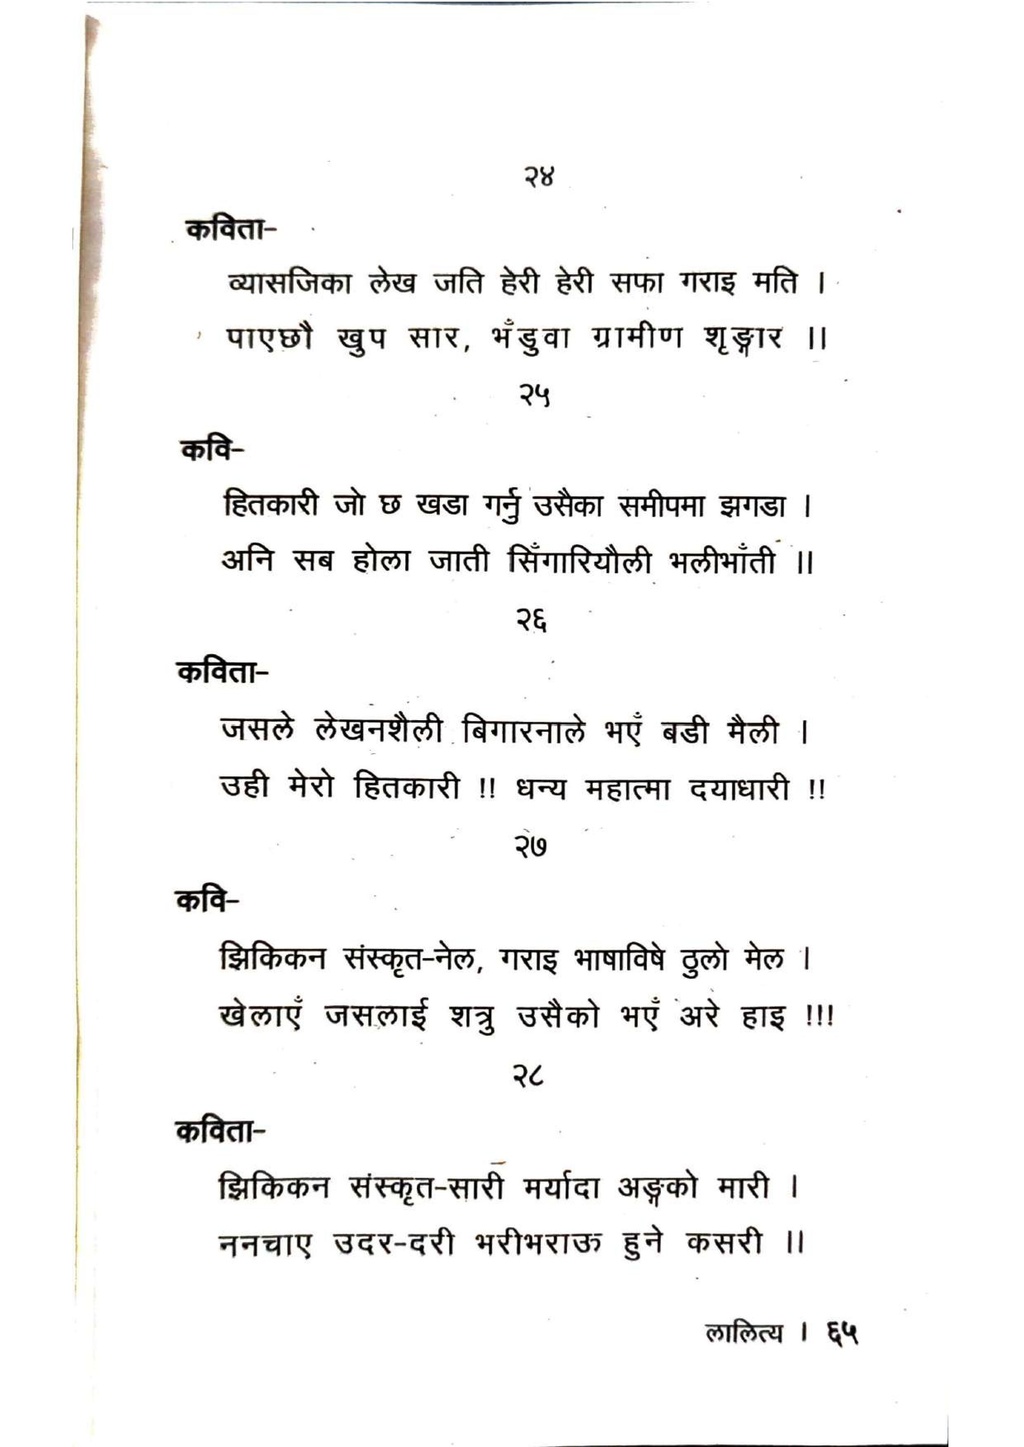 २४
कविता-
व्यासजिका लेख जति हेरी हेरी सफा गराइ मति ।
पाएछौ खुप सार, भँडुवा ग्रामीण शृङ्गार ॥
२५
कवि-
हितकारी जो छ खडा गर्नु उसैका समीपमा झगडा ।
अनि सब होला जाती सिँगारियौली भलीभाँती ॥
२६
कविता-
जसले लेखनशैली बिगारनाले भएँ बडी मैली ।
उही मेरो हितकारी !! धन्य महात्मा दयाधारी !!
२७
कवि-
झिकिकन संस्कृत-नेल, गराइ भाषाविषे ठुलो मेल ।
खेलाएँ जसलाई शत्रु उसैको भएँ अरे हाइ !!!
२८
कविता-
झिकिकन संस्कृत-सारी मर्यादा अङ्गको मारी ।
ननचाए उदर-दरी भरीभराऊ हुने कसरी ॥
लालित्य । ६५